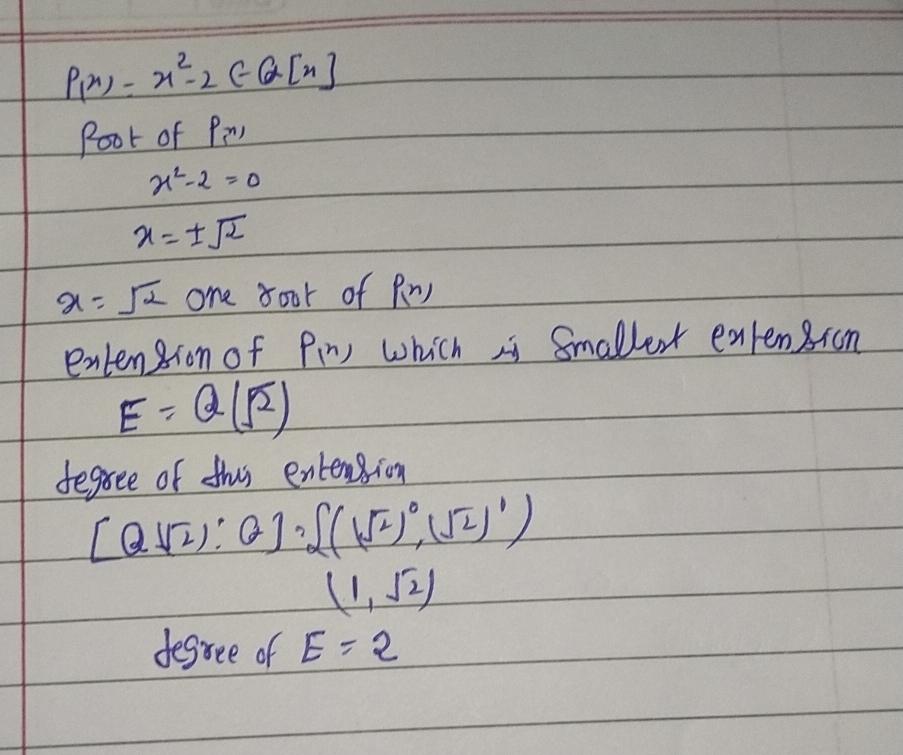 P(x) = x²-2 ∈ Q[x]
Root of P(x)
x²-2 = 0
x = ± √2
x = √2 one root of P(x)
extension of P(x) which is smallest extension
E = Q(√2)
degree of this extension
[Q√2): Q] = {((√2)⁰, (√2)¹)
(1, √2)
degree of E = 2